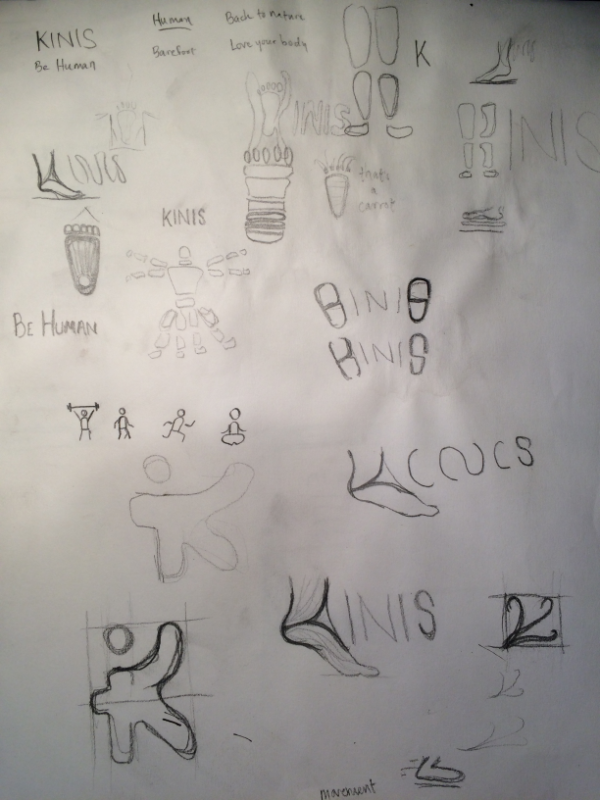 KINIS
Be Human
Human
Barefoot
Back to nature
Love your body
K
INIS
INIS
that's
a
carrot
KINIS
BE HUMAN
KINIS
KINIS
KINIS
movement